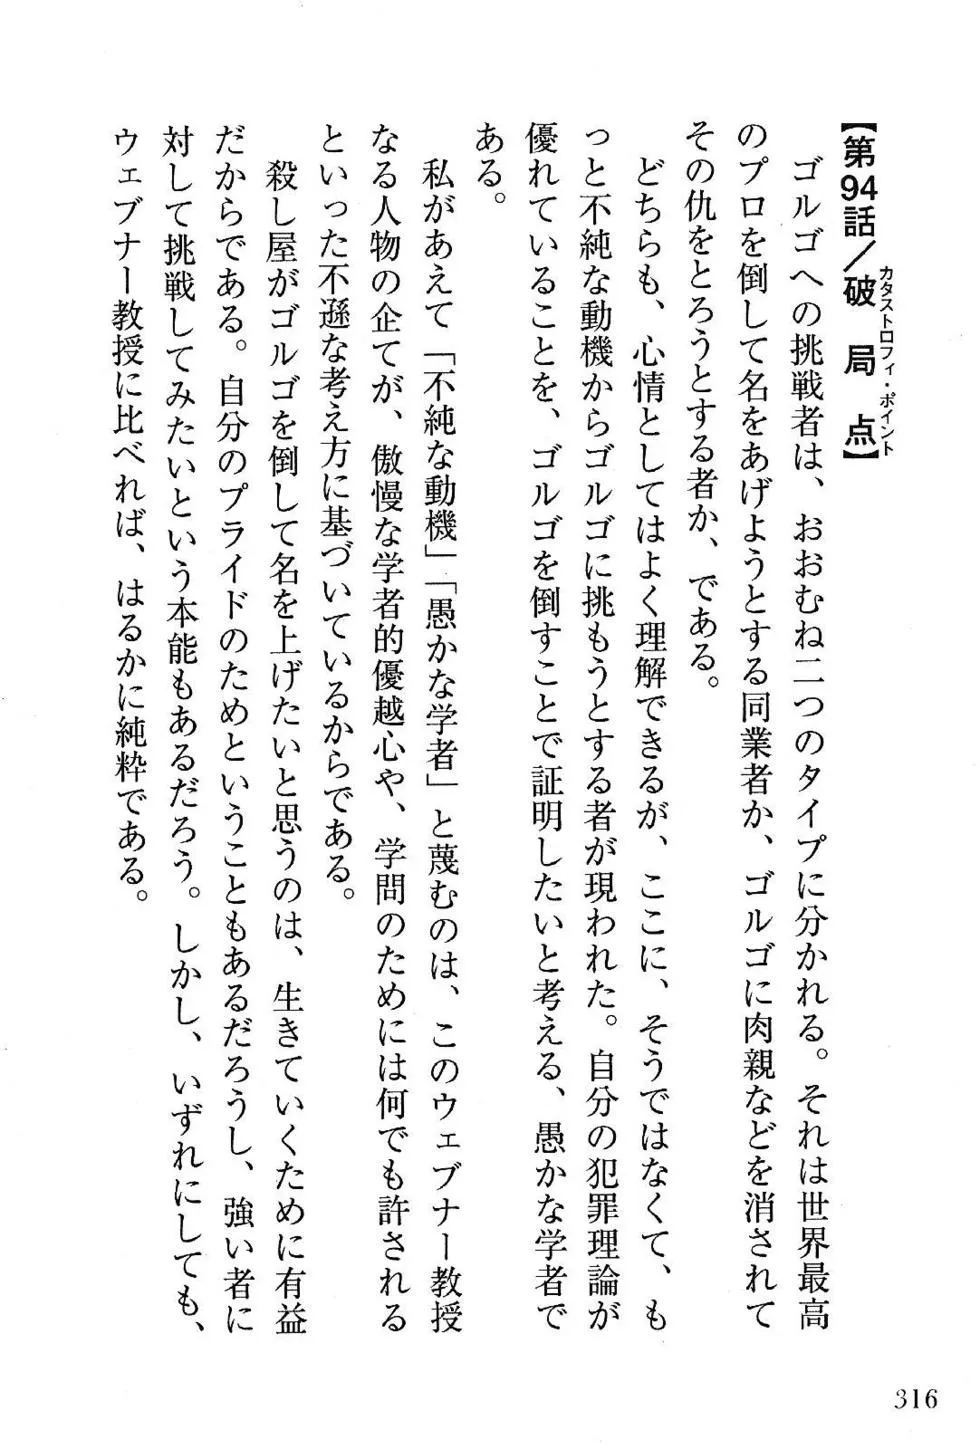 【第94話／破局点】
カタストロフィ・ポイント
ゴルゴへの挑戦者は、おおむね二つのタイプに分かれる。それは世界最高
のプロを倒して名をあげようとする同業者か、ゴルゴに肉親などを消されて
その仇をとろうとする者か、である。
どちらも、心情としてはよく理解できるが、ここに、そうではなくて、も
っと不純な動機からゴルゴに挑もうとする者が現われた。自分の犯罪理論が
優れていることを、ゴルゴを倒すことで証明したいと考える、愚かな学者で
ある。
私があえて「不純な動機」「愚かな学者」と蔑むのは、このウェブナー教授
なる人物の企てが、傲慢な学者的優越心や、学問のためには何でも許される
といった不遜な考え方に基づいているからである。
殺し屋がゴルゴを倒して名を上げたいと思うのは、生きていくために有益
だからである。自分のプライドのためということもあるだろうし、強い者に
対して挑戦してみたいという本能もあるだろう。しかし、いずれにしても、
ウェブナー教授に比べれば、はるかに純粋である。
316